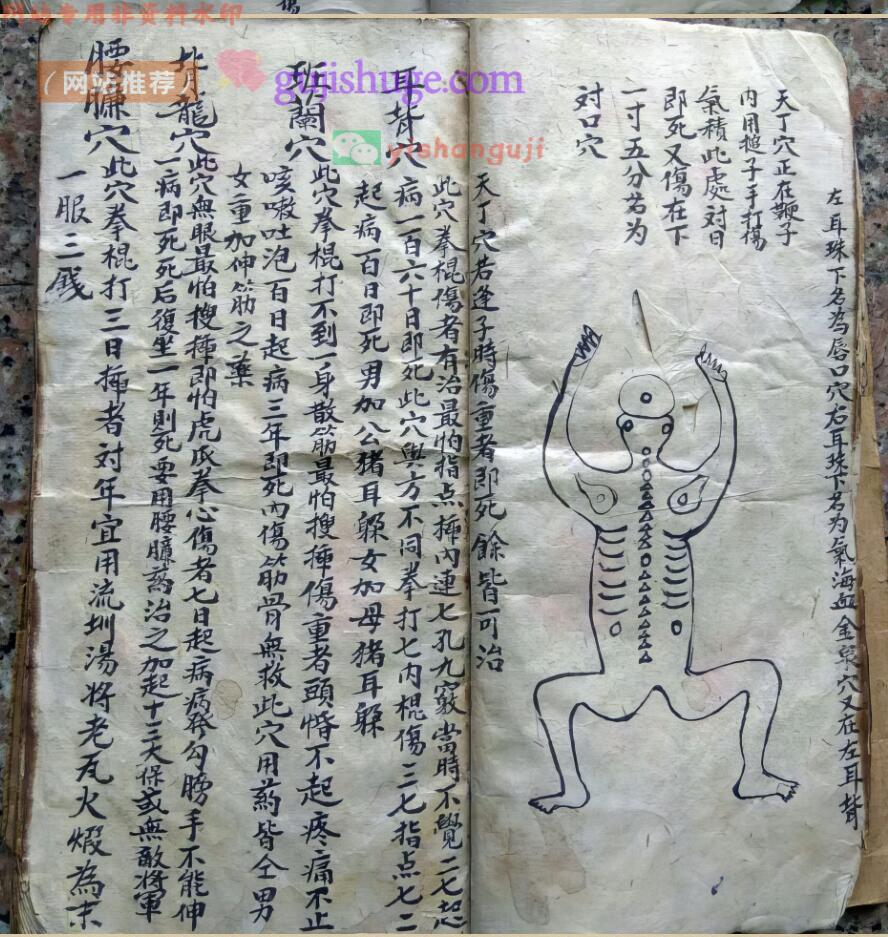 网站专用非资料水印
（网站推荐）
gujishuge.com
yishanguji
左耳珠下名为唇口穴右耳珠下名为氣海血金泉穴又在左耳背
天丁穴正在鞭子
内用搥子手打傷
氣積此處对日
即死又傷在下
一寸五分名为
对口穴
天丁穴若逢子時傷重者即死餘皆可治
耳背穴
此穴拳棍傷者有治最怕指点插内連七孔九竅當時不覺二七起
病一百六十日即死此穴與方不同拳打七内棍傷三七指点七二
起病一百日即死男加公猪耳躲女加母猪耳躲
班蘭穴
此穴拳棍打不到一身散筋最怕搜插傷重者頭惛不起疼痛不止
咳嗽吐泡百日起病三年即死内傷筋骨無救此穴用药皆仝男
女重加伸筋之藥
背龍穴
此穴無眼最怕搜插即怕虎爪拳心傷者七日起病病發勾膀手不能伸
一病即死死后復坐一年則死要用腰臁药治之加起十三大保或無敵將軍
腰臁穴
此穴拳棍打三日插者対年宜用流圳湯將老瓦火煆為末
一服三錢